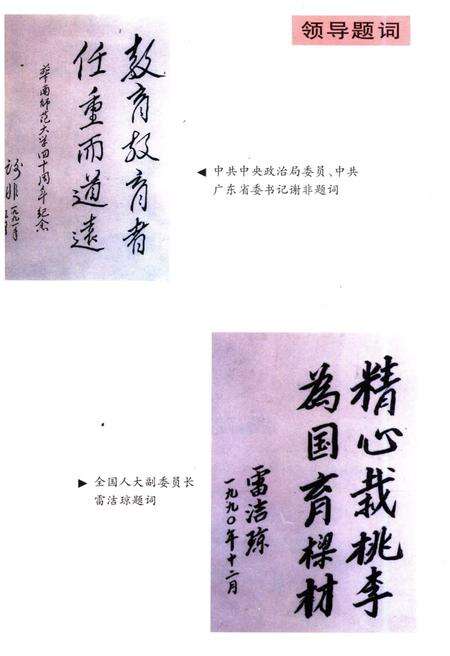 领导题词
教育教育者
任重而道远
华南师范大学四十周年纪念
谢非 一九九一年
◀ 中共中央政治局委员、中共
广东省委书记谢非题词
精心栽桃李
為国育樑材
雷洁琼
一九九〇年十二月
▶ 全国人大副委员长
雷洁琼题词